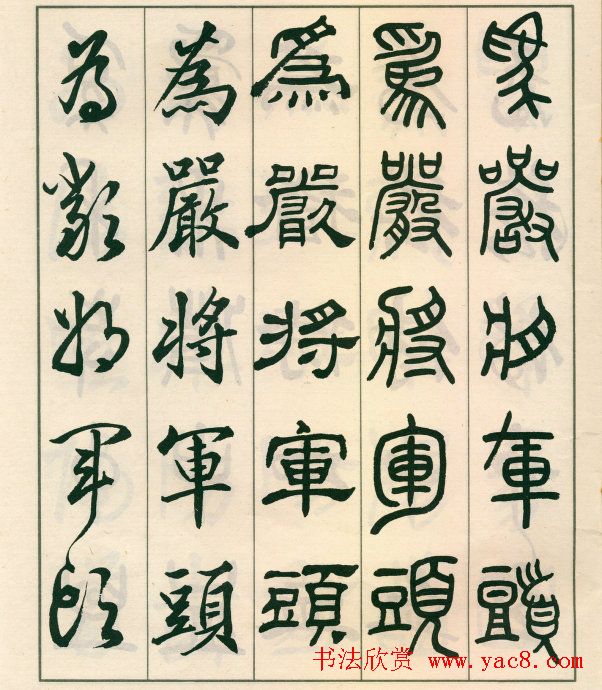 爲嚴將軍頭
爲嚴將軍頭
爲嚴將軍頭
為嚴將軍頭
為嚴將軍頭
书法欣赏 www.yac8.com